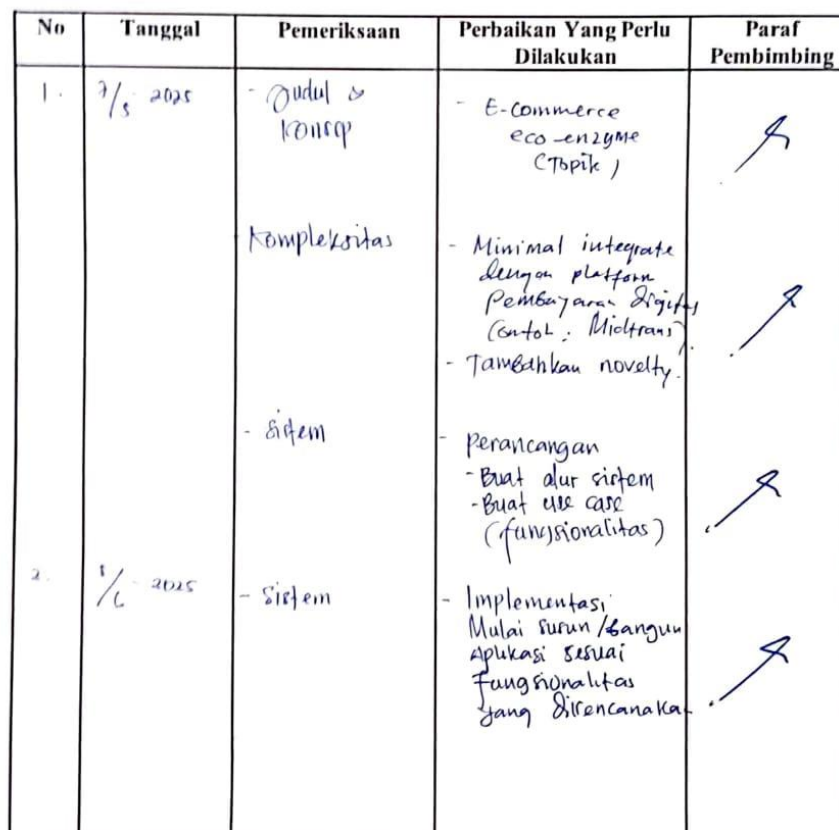 No Tanggal Pemeriksaan Perbaikan Yang Perlu Dilakukan Paraf Pembimbing
1. 7/5 2025 - Judul & Konsep
- E-commerce
eco-enzyme
(Topik)
Kompleksitas
- Minimal integrate
dengan platform
Pembayaran digital
(Contoh: Midtrans).
- Tambahkan novelty.
- Sistem
- Perancangan
- Buat alur sistem
- Buat use case
(fungsionalitas)
2. /6 2025 - Sistem
- Implementasi
Mulai susun/bangun
Aplikasi sesuai
Fungsionalitas
yang direncanakan